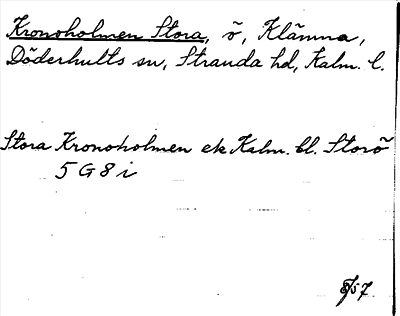 Kronoholmen Stora, ö, Klämna,
Döderhults sn, Stranda hd, Kalm. l.
Stora Kronoholmen ek Kalm. bl. Storö
5 G 8 i
8/57